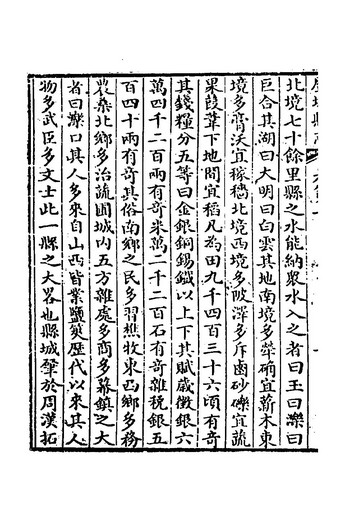 北境七十餘里縣之水能納衆水入之者曰玉曰濼曰
巨合其湖曰大明曰白雲其地南境多犖确宜薪木東
境多膏沃宜稼穡北境西境多陂澤多斥鹵砂礫宜蔬
果葭葦下地間宜稻凡為田九千四百三十六頃有奇
其錢糧分五等曰金銀銅錫鐵以上下其賦歲徵銀六
萬四千二百兩有奇米萬二千二百石有奇雜稅銀五
百四十兩有奇其俗南鄉之民多習樵牧東西鄉多務
農桑北鄉多治蔬圃城内五方雜處多商多幕鎮之大
者曰濼口其人多來自山西皆業鹽筴歷代以來其人
物多武臣多文士此一縣之大畧也縣城肇於周漢拓